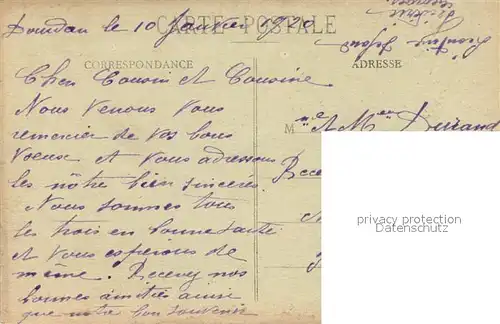 Dourdan le 10 Janvier 1920
CARTE POSTALE
CORRESPONDANCE
ADRESSE
Cher Cousin et Cousine
Nous venons vous
remercier de vos bons
voeux et vous adressons
les nôtre bien sincères.
Nous sommes tous
les trois en bonne santé
et vous espérons de
même. Recevez nos
bonnes amitiés ainsi
que notre bon souvenir
M me & Mr Durand
Rece
privacy protection
Datenschutz